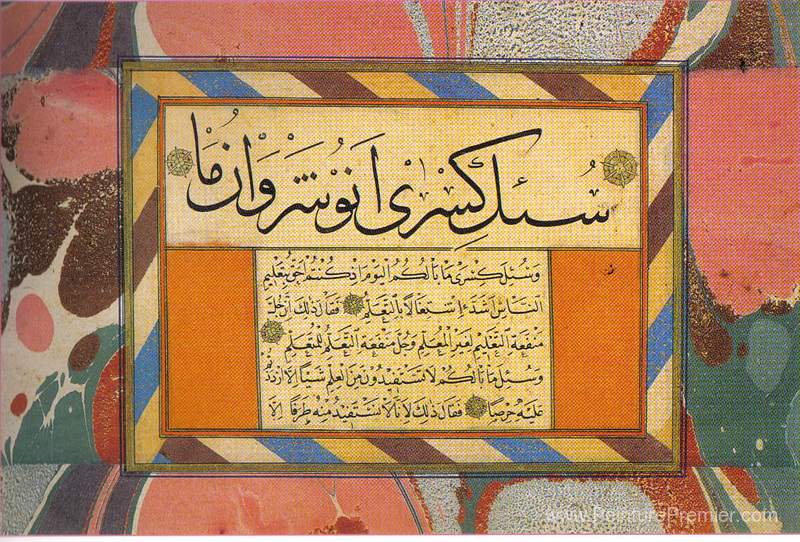 سُئِلَ كِسْرٰى اَنُوشَرْوَانُ مَا
وَسُئِلَ كِسْرٰى مَا بَالُكُمُ الْيَوْمَ اِذْ كُنْتُمْ اَحَقَّ بِتَعْلِيمِ
النَّاسِ اَشَدَّ اِسْتِعْمَالًا بِالتَّعَلُّمِ فَقَالَ ذٰلِكَ اَنَّ جُلَّ
مَنْفَعَةِ التَّعْلِيمِ لِغَيْرِ الْمُعَلِّمِ وَجُلَّ مَنْفَعَةِ التَّعَلُّمِ لِلْمُتَعَلِّمِ
وَسُئِلَ مَا بَالُكُمْ لَا تَسْتَفِيدُونَ مِنَ الْعِلْمِ شَيْئًا اِلَّا ازْدَدْتُمْ
عَلَيْهِ حِرْصًا فَقَالَ ذٰلِكَ لِاَنَّا لَا نَسْتَفِيدُ مِنْهُ طَرَفًا اِلَّا
www.PeinturePremier.com